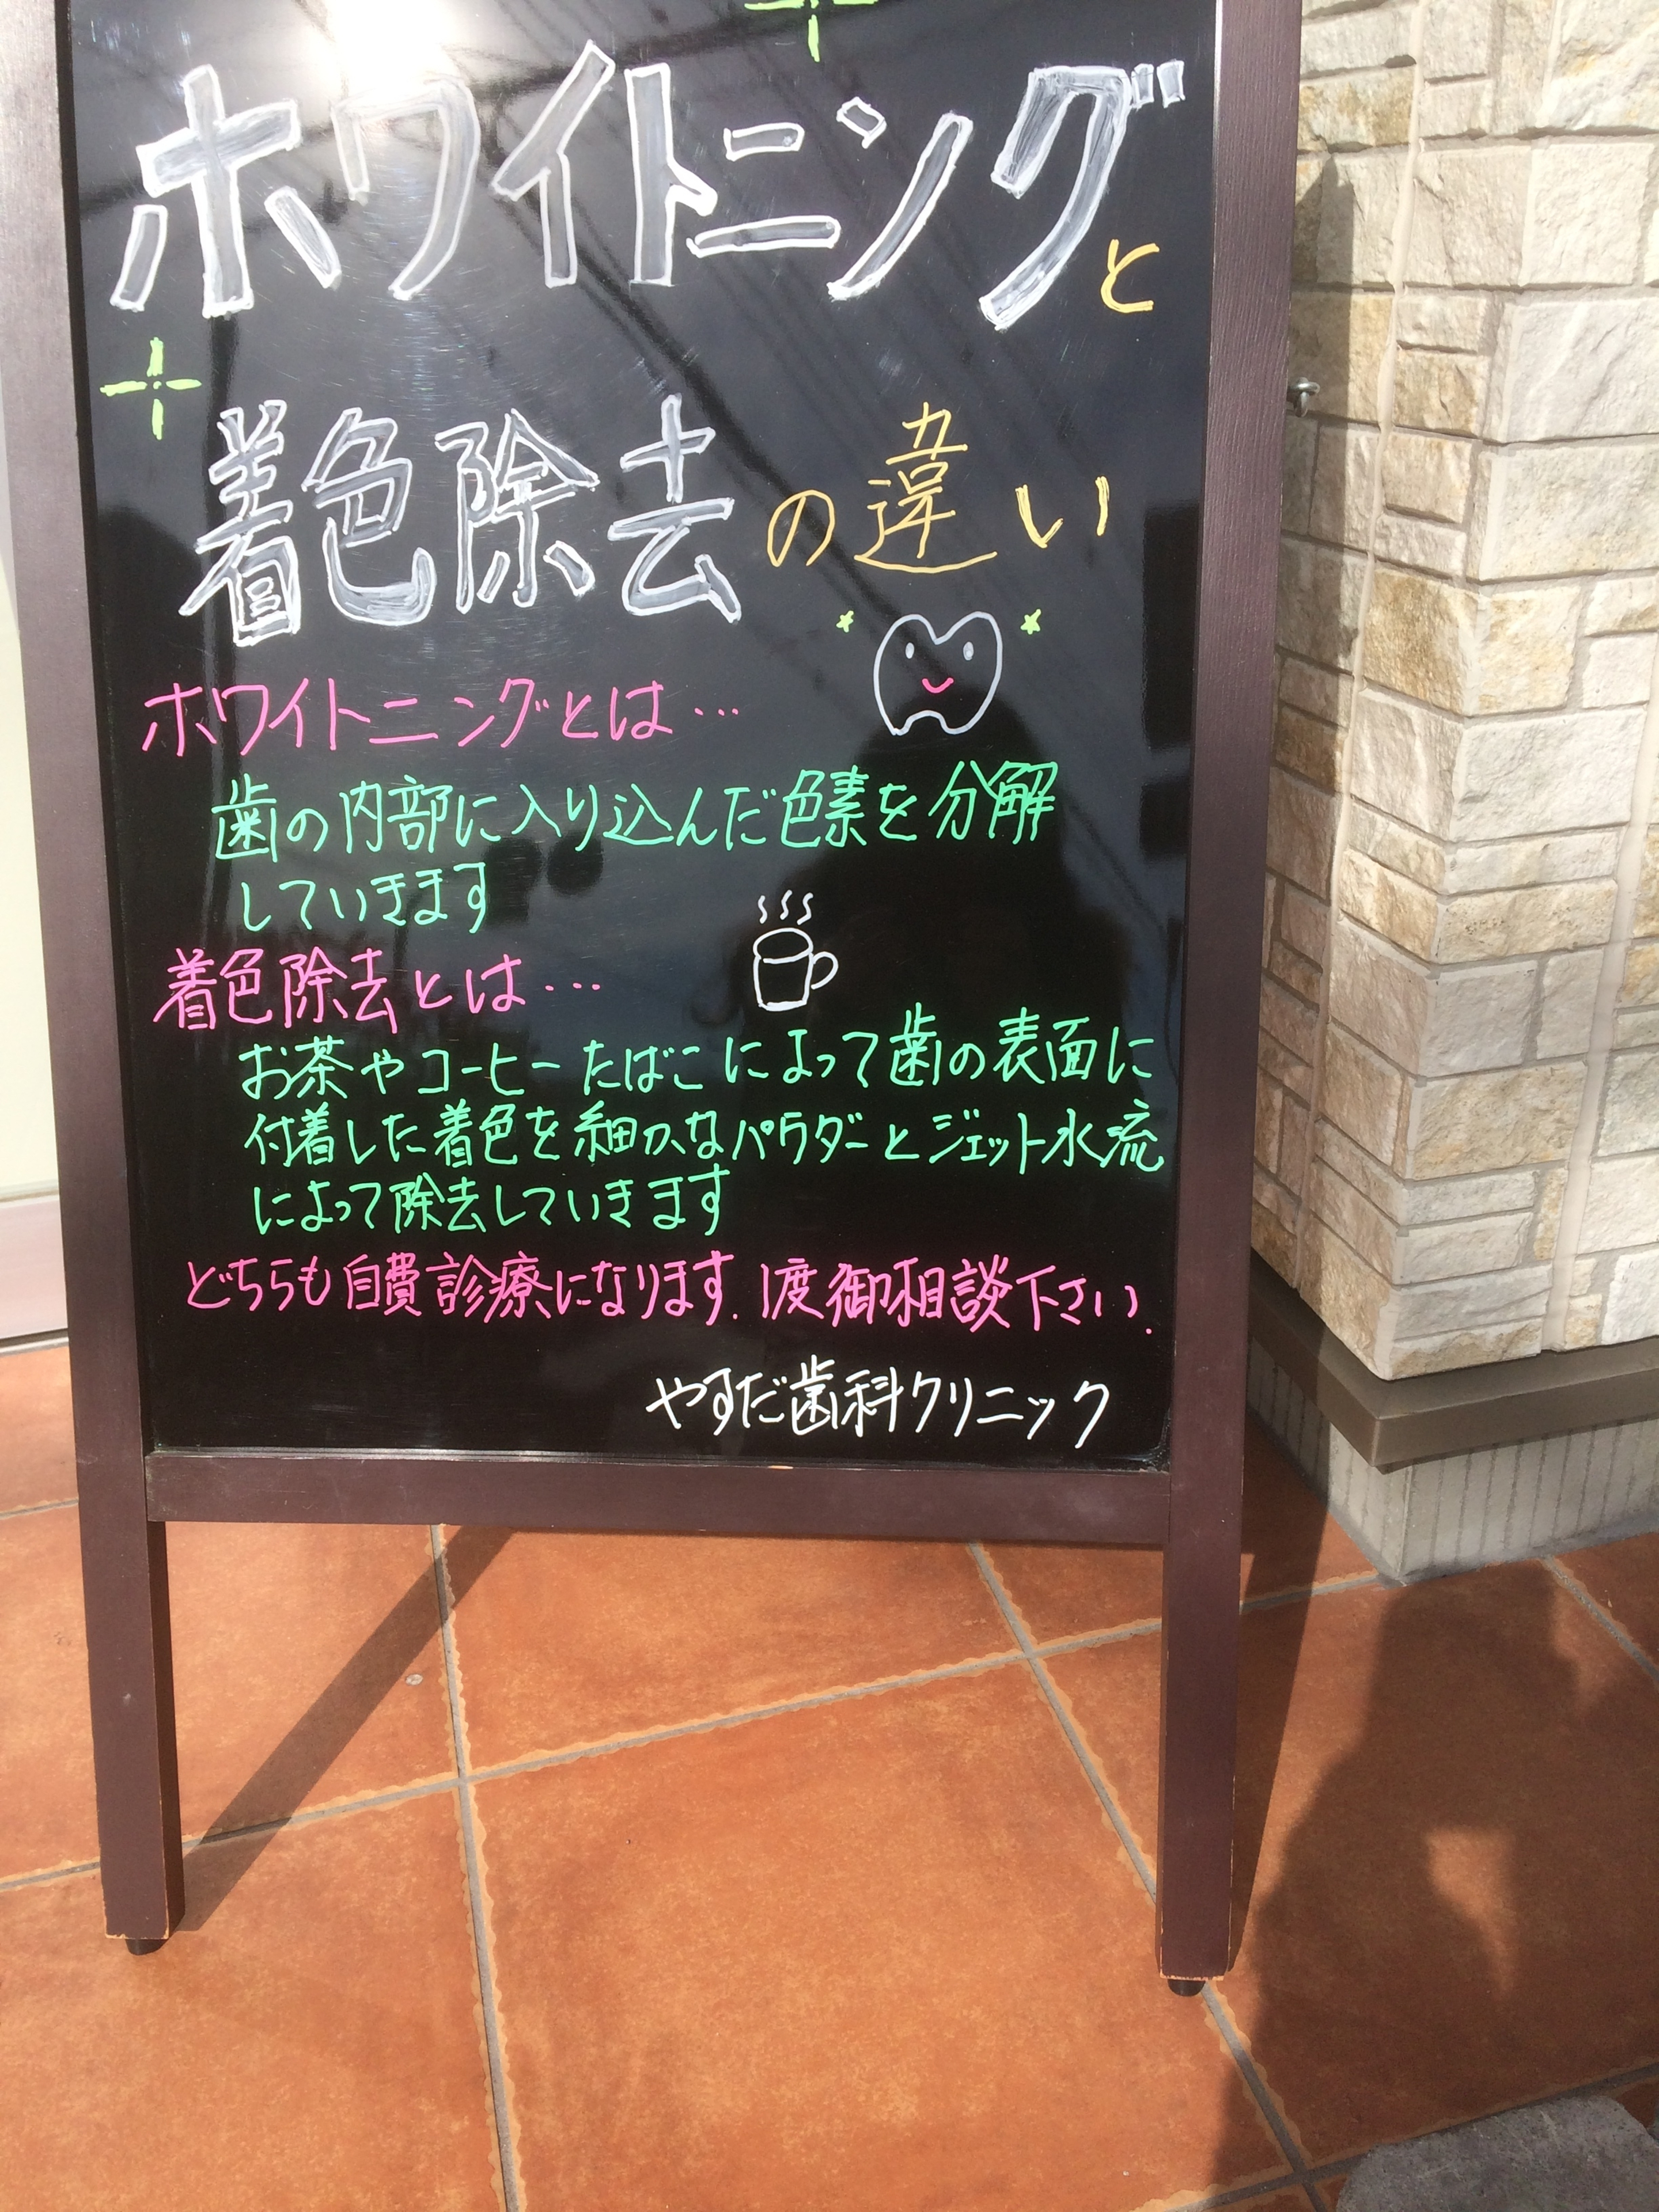 ホワイトニングと
着色除去の違い
ホワイトニングとは…
歯の内部に入り込んだ色素を分解
していきます
着色除去とは…
お茶やコーヒーたばこによって歯の表面に
付着した着色を細かなパウダーとジェット水流
によって除去していきます
どちらも自費診療になります.1度御相談下さい.
やすだ歯科クリニック